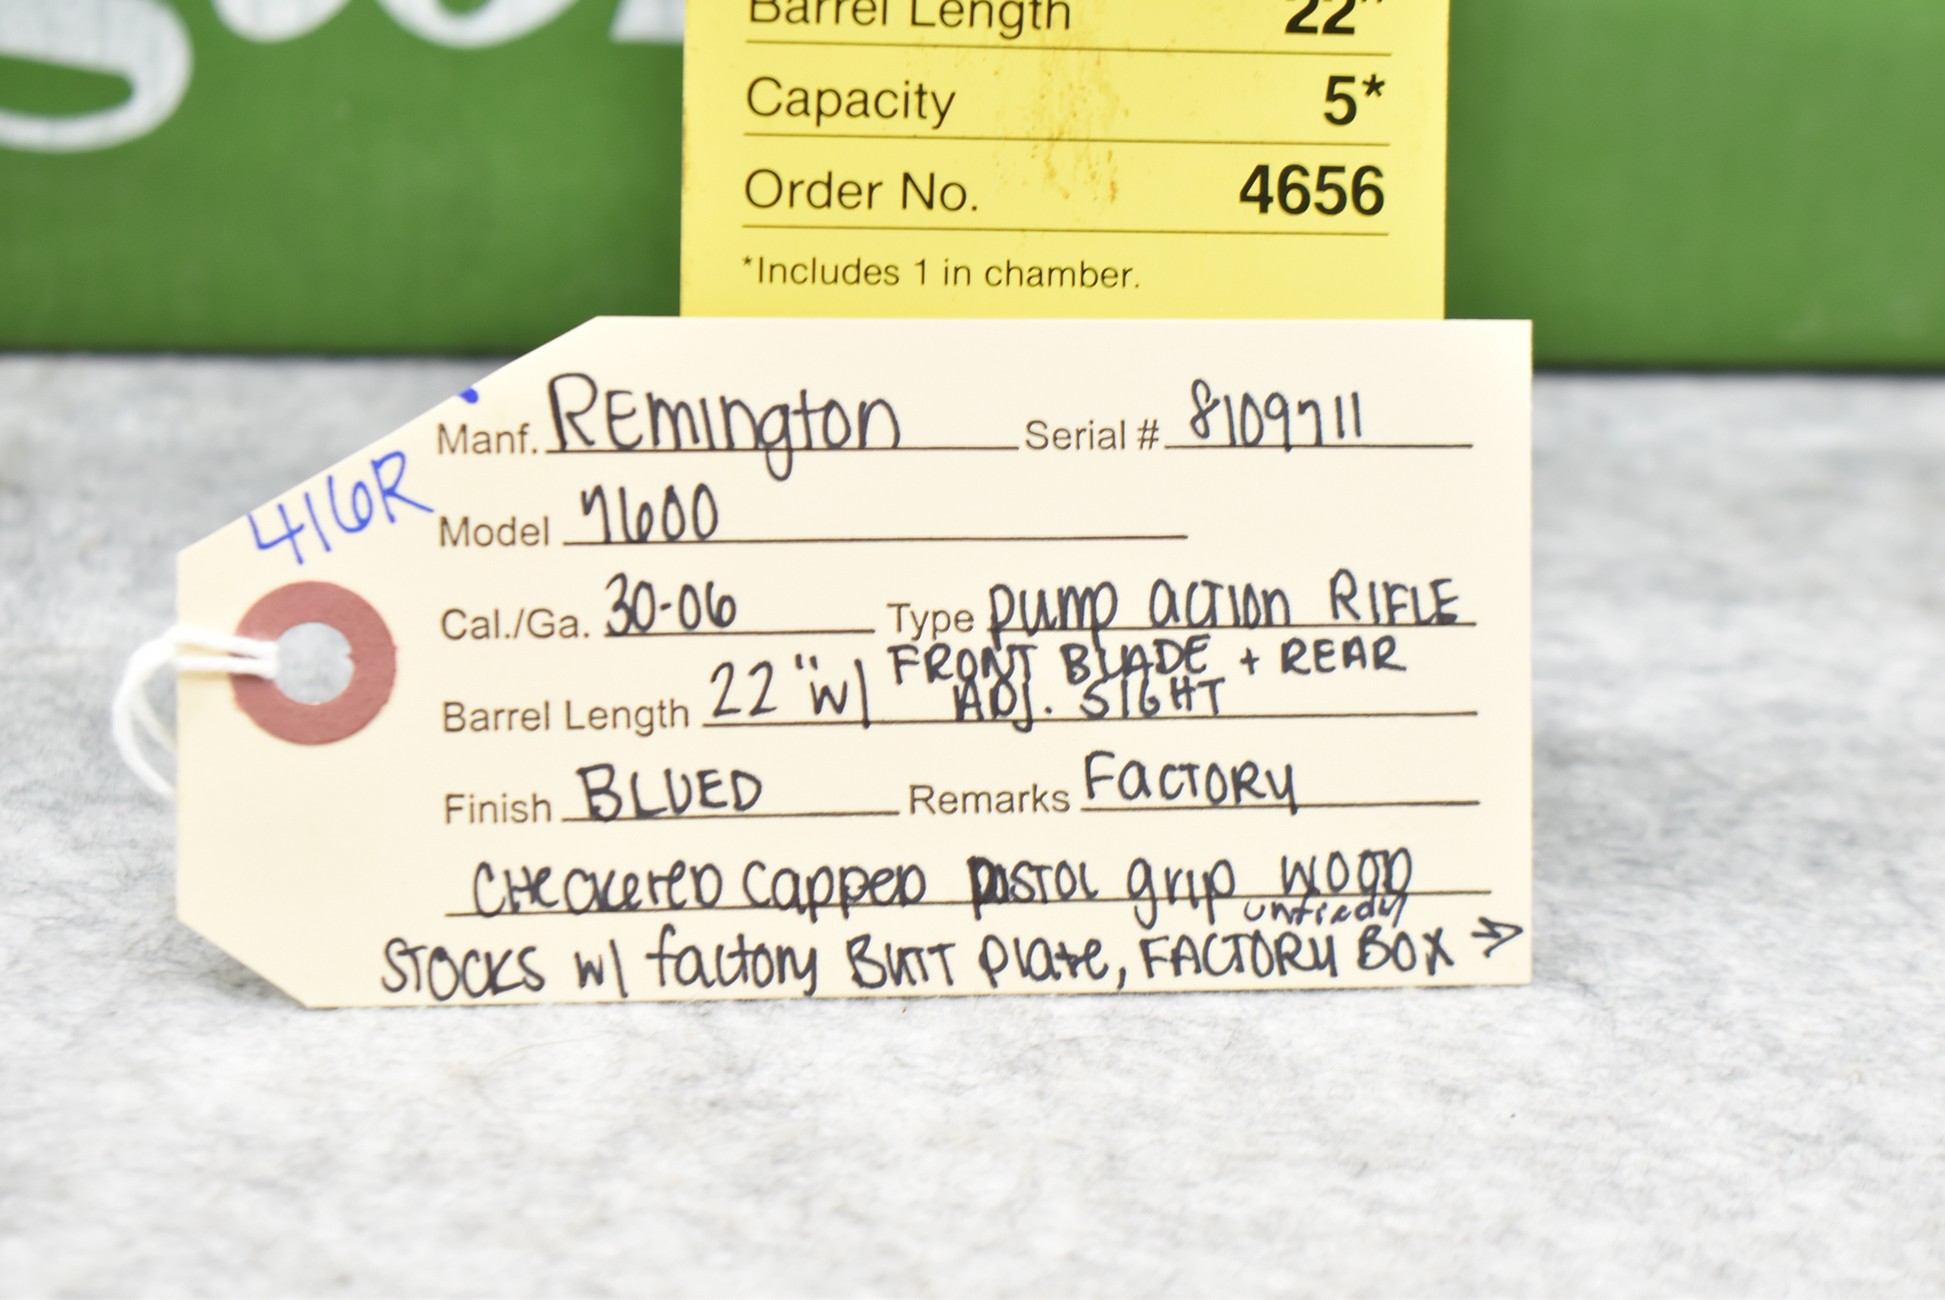 Barrel Length 22"
Capacity 5*
Order No. 4656
*Includes 1 in chamber.
416R
Manf. REmington Serial # 8109711
Model 7600
Cal./Ga. 30-06 Type pump action RIFLE
FRONT BLADE + REAR
Barrel Length 22" w/ ADJ. SIGHT
Finish BLUED Remarks FACTORY
CHECKERED CAPPED PISTOL grip WOOD
STOCKS w/ factory BUTT plate, FACTORY BOX →